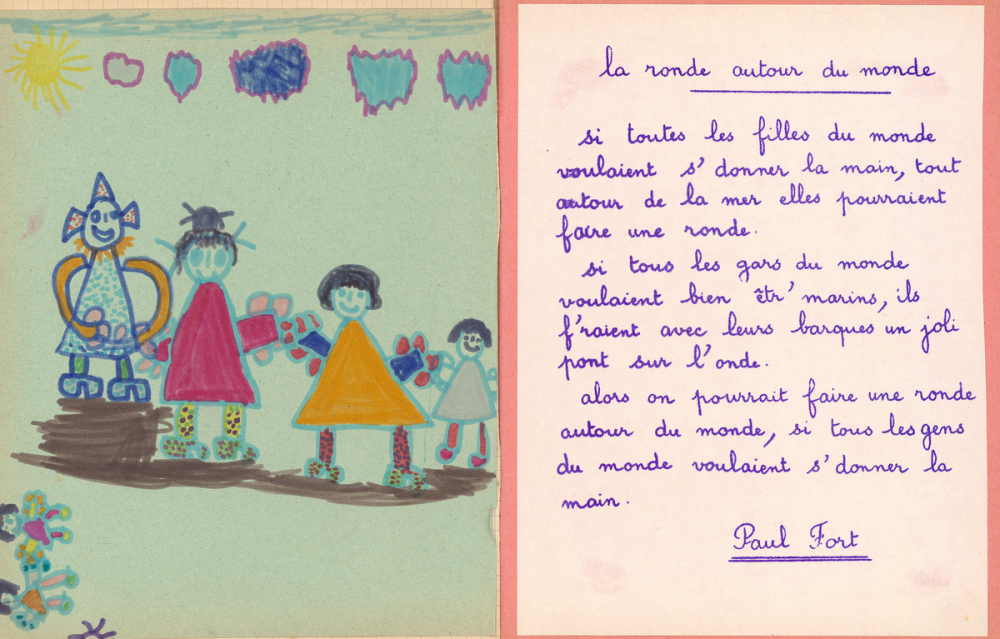 la ronde autour du monde
si toutes les filles du monde
voulaient s' donner la main, tout
autour de la mer elles pourraient
faire une ronde.
si tous les gars du monde
voulaient bien êtr' marins, ils
f'raient avec leurs barques un joli
pont sur l'onde.
alors on pourrait faire une ronde
autour du monde, si tous les gens
du monde voulaient s'donner la
main.
Paul Fort